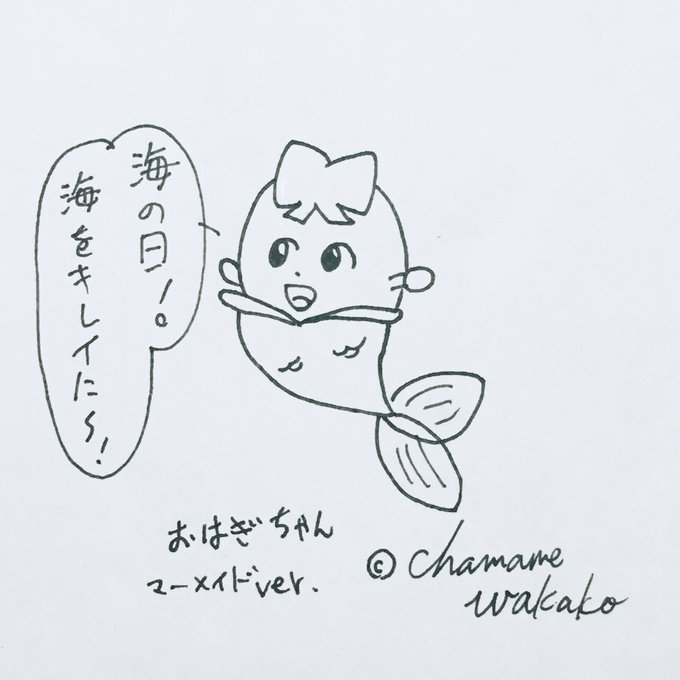 海の日!。
海をキレイに〜!
おはぎちゃん
マーメイドver.
© chamame
wakako